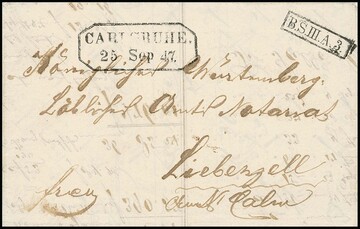 CARLSRUHE.
25 Sep 47.
B.S.III.A.3
Königliches Würtemberg.
Löbliches Amts Notariat
Liebenzell
Calw
frey